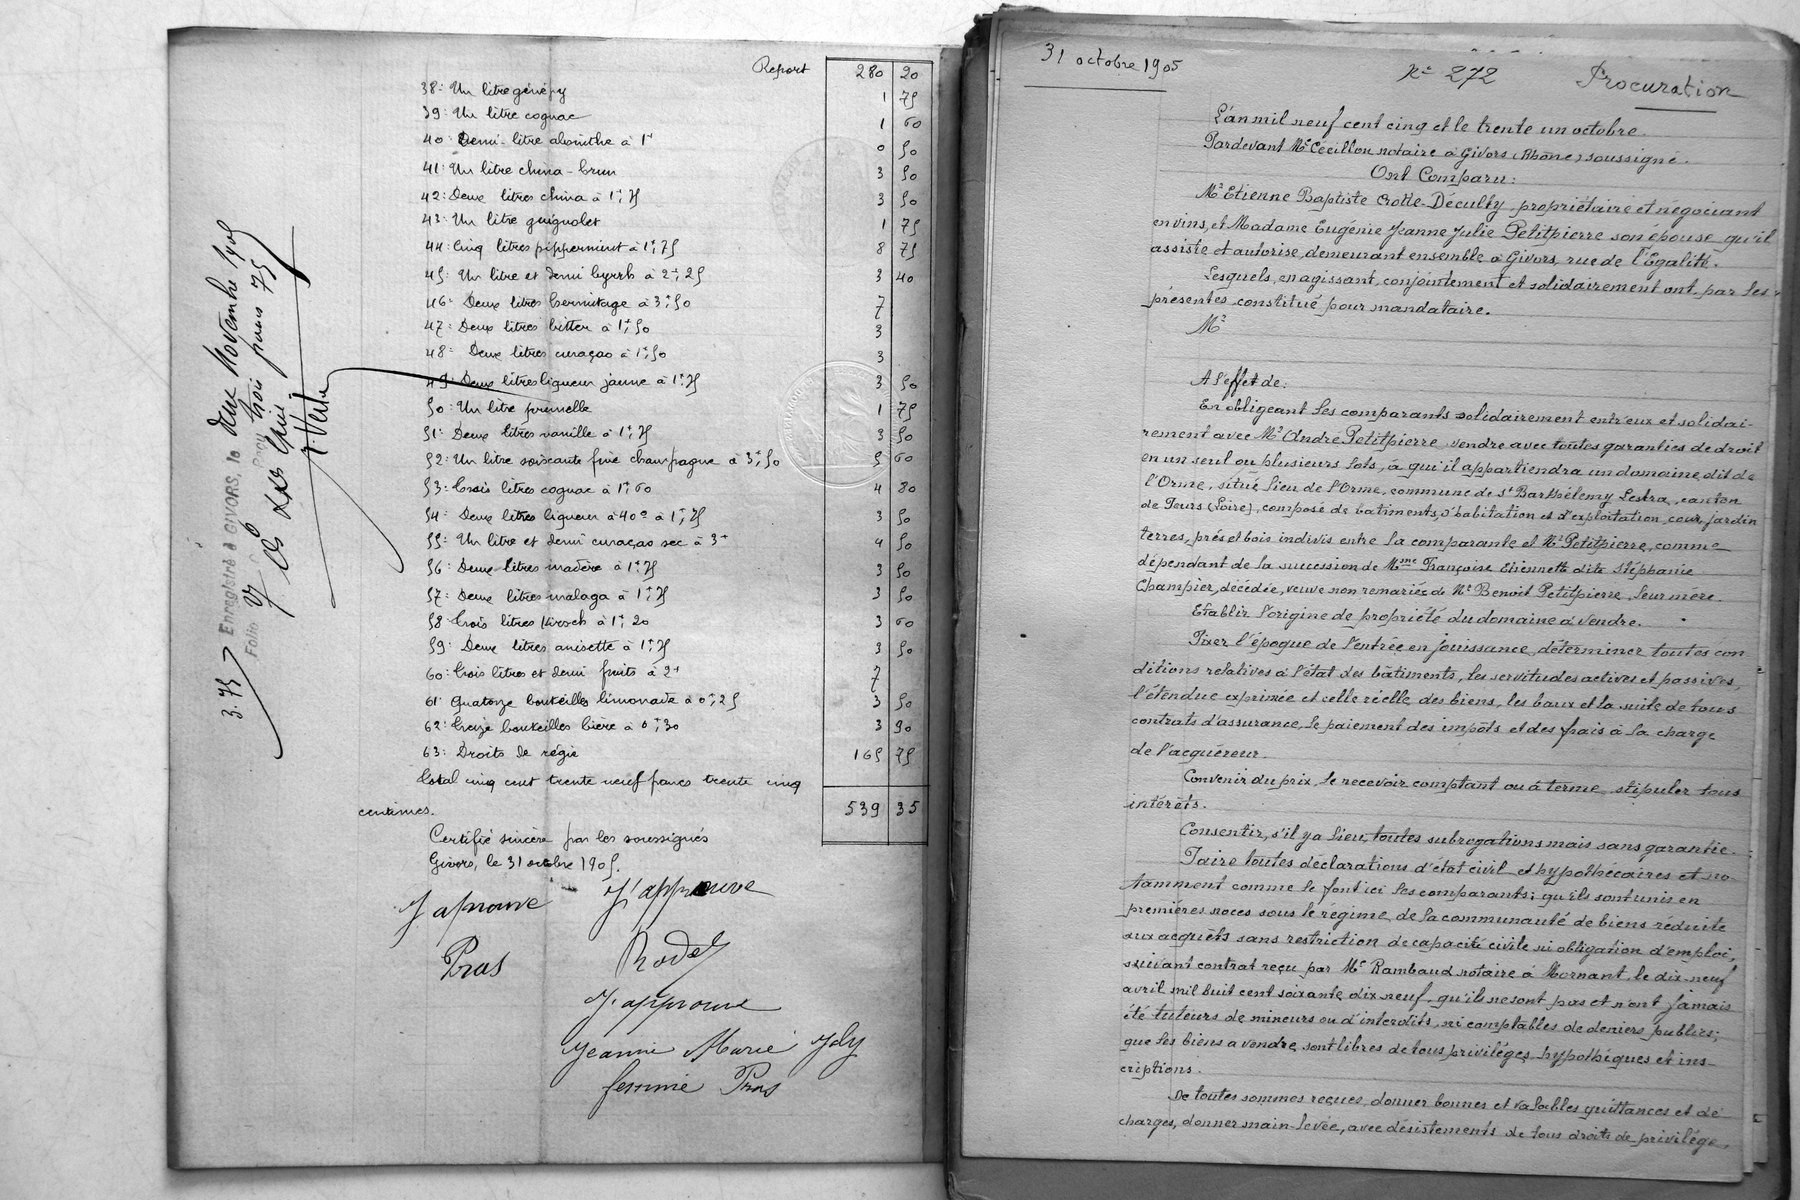 Report 280 20
38: Un litre génépy 1 75
39: Un litre cognac 1 60
40: Demi-litre absinthe à 1f 0 50
41: Un litre china-brun 3 50
42: Deux litres china à 1f,75 3 50
43: Un litre guignolet 1 75
44: Cinq litres pippermint à 1f,75 8 75
45: Un litre et demi byrrh à 2f,25 3 40
46: Deux litres hermitage à 3f,50 7
47: Deux litres bitter à 1f,50 3
48: Deux litres curaçao à 1f,50 3
49: Deux litres liqueur jaune à 1f,75 3 50
50: Un litre prunelle 1 75
51: Deux litres vanille à 1f,75 3 50
52: Un litre soixante fine champagne à 3f,50 5 60
53: Trois litres cognac à 1f,60 4 80
54: Deux litres liqueur à 40° à 1f,75 3 50
55: Un litre et demi curaçao sec à 3f 4 50
56: Deux litres madère à 1f,75 3 50
57: Deux litres malaga à 1f,75 3 50
58: Trois litres kirsch à 1f,20 3 60
59: Deux litres anisette à 1f,75 3 50
60: Trois litres et demi fruits à 2f 7
61: Quatorze bouteilles limonade à 0f,25 3 50
62: Treize bouteilles bière à 0f,30 3 90
63: Droits de régie 165 75
Total cinq cent trente neuf francs trente cinq
centimes. 539 35
Certifié sincère par les soussignés
Givors, le 31 octobre 1905.
J'aprouve J'approuve
Pras Rodet
J'approuve
Jeanne Marie Joly
femme Pras
3.75 Enregistré à GIVORS, le deux Novembre 1905
Folio Reçu trois francs 75
31 octobre 1905
N° 272 Procuration
L'an mil neuf cent cinq et le trente un octobre.
Pardevant Me Cécillon notaire à Givors (Rhône) soussigné.
Ont Comparu:
Mr Etienne Baptiste Crotte-Déculty, propriétaire et négociant
en vins, et Madame Eugénie Jeanne Julie Petitpierre son épouse qu'il
assiste et autorise, demeurant ensemble à Givors, rue de l'Egalité.
Lesquels, en agissant conjointement et solidairement ont par les
présentes constitué pour mandataire.
Mr
A l'effet de:
En obligeant les comparants solidairement entr'eux et solidai-
rement avec Mr André Petitpierre, vendre avec toutes garanties de droit
en un seul ou plusieurs lots, à qui il appartiendra un domaine, dit de
l'Orme, situé lieu de l'Orme, commune de St Barthélemy Lestra, canton
de Feurs (Loire), composé de bâtiments, d'habitation et d'exploitation, cour, jardin
terres, prés et bois indivis entre la comparante et Mr Petitpierre, comme
dépendant de la succession de Mme Françoise Etiennette dite Stéphanie
Champier, décédée, veuve non remariée de Mr Benoit Petitpierre, leur mère.
Etablir l'origine de propriété du domaine à vendre.
Fixer l'époque de l'entrée en jouissance, déterminer toutes con
ditions relatives à l'état des bâtiments, les servitudes actives et passives,
l'étendue exprimée et celle réelle des biens, les baux et la suite de tous
contrats d'assurance, le paiement des impôts et des frais à la charge
de l'acquéreur.
Convenir du prix, le recevoir comptant ou à terme, stipuler tous
intérêts.
Consentir, s'il y a lieu, toutes subrogations mais sans garantie.
Faire toutes déclarations d'état civil et hypothécaires et no
tamment comme le font ici les comparants; qu'ils sont unis en
premières noces sous le régime de la communauté de biens réduite
aux acquêts sans restriction de capacité civile ni obligation d'emploi,
suivant contrat reçu par Me Rambaud notaire à Mornant, le dix neuf
avril mil huit cent soixante dix neuf, qu'ils ne sont pas et n'ont jamais
été tuteurs de mineurs ou d'interdits, ni comptables de deniers publics;
que les biens a vendre sont libres de tous privilèges, hypothèques et ins-
criptions.
De toutes sommes reçues, donner bonnes et valables quittances et dé
charges, donner main-levée, avec désistements de tous droits de privilège,